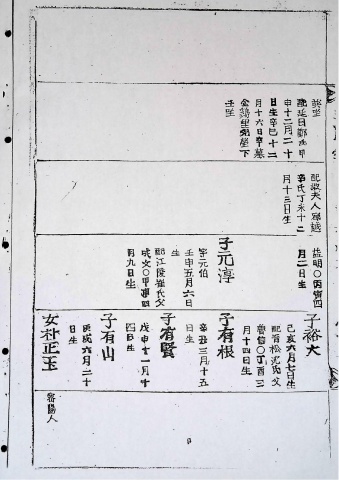 配延日鄭氏甲
申十二月二十
日生辛巳十二
月十六日卒墓
壬坐
配淑夫人寧越
辛氏丁未十二
月十三日生
益明○丙寅四
月二日生
子元淳
字元伯
壬申五月六日
生
配江陵崔氏父
成文○甲寅四
月九日生
子裕大
己亥六月七日生
月十四日生
子有根
辛丑三月十五
日生
子有賢
戊申十一月十
四日生
子有山
庚戌六月二十
日生
女朴正玉
密陽人